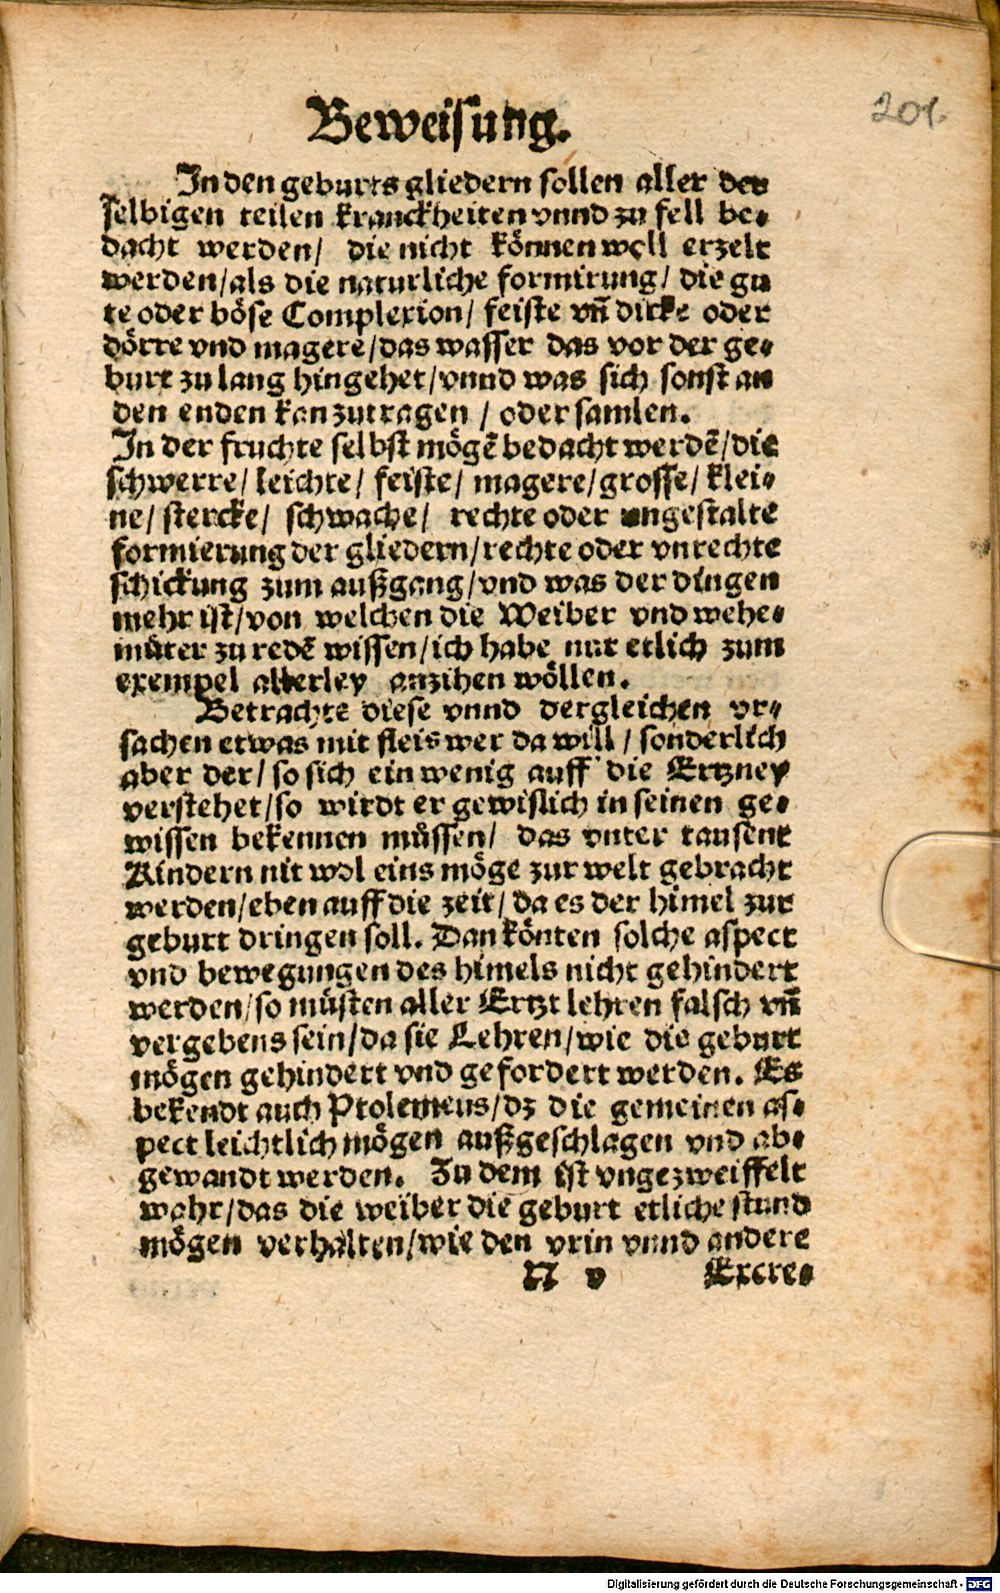 Beweisung.
201.
In den geburts gliedern sollen aller der
selbigen teilen kranckheiten vnnd zu fell be-
dacht werden/ die nicht können woll erzelt
werden/als die naturliche formirung/ die gu
te oder böse Complexion/ feiste vñ dicke oder
dörre vnd magere/das wasser das vor der ge-
burt zu lang hingehet/vnnd was sich sonst an
den enden kan zutragen / oder samlen.
In der fruchte selbst mögẽ bedacht werdẽ/die
schwerre/ leichte/ feiste/ magere/grosse/ klei-
ne/ stercke/ schwache/ rechte oder ungestalte
formierung der gliedern/rechte oder vnrechte
schickung zum außgang/vnd was der dingen
mehr ist/von welchen die Weiber vnd wehe-
müter zu redẽ wissen/ich habe nur etlich zum
exempel allerley anzihen wöllen.
Betrachte diese vnnd dergleichen vr-
sachen etwas mit fleis wer da will / sonderlich
aber der/ so sich ein wenig auff die Ertzney
verstehet/so wirdt er gewislich in seinen ge-
wissen bekennen müssen/ das vnter tausent
Kindern nit wol eins möge zur welt gebracht
werden/eben auff die zeit/ da es der himel zur
geburt dringen soll. Dan könten solche aspect
vnd bewegungen des himels nicht gehindert
werden/so müsten aller Ertzt lehren falsch vñ
vergebens sein/da sie Lehren/wie die geburt
mögen gehindert vnd gefordert werden. Es
bekendt auch Ptolemeus/dz die gemeinen as-
pect leichtlich mögen außgeschlagen vnd ab-
gewandt werden. Zu dem ist vngezweiffelt
wahr/das die weiber die geburt etliche stund
mögen verhalten/wie den vrin vnnd andere
N v Excre-
Digitalisierung gefördert durch die Deutsche Forschungsgemeinschaft - DFG